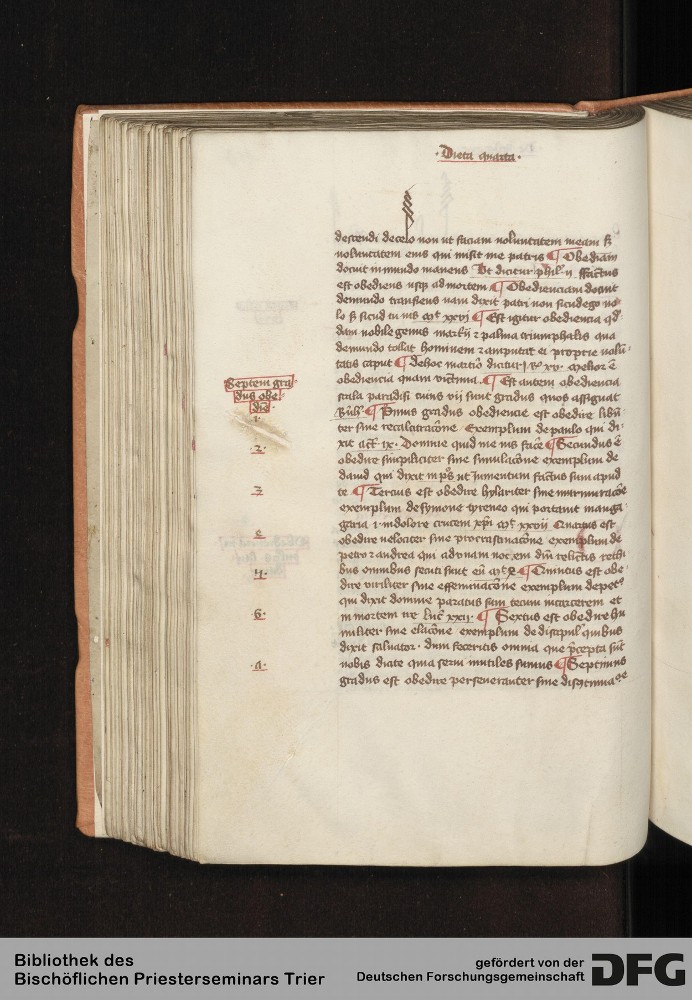 · Dieta quarta ·
descendi de celo non ut faciam voluntatem meam sꝫ
voluntatem eius qui misit me patris ¶ Obediam
docuit in mundo manens Ut dicitur phil' ij ffactus
est obediens usqꝫ ad mortem ¶ Obedienciam docuit
de mundo transiens nam dixit patri non sicud ego vo¬
lo sꝫ sicud tu vis mt̄ xxvj ¶ Est igitur obediencia qd'
dam nobile genus martirij ⁊ palma triumphalis qua
de mundo tollit hominem ⁊ amputat ei proprie volū
tatis caput ¶ de hoc martirio dicitur j Rº xv. Melior ē
obediencia quam victima. ¶ Est autem obediencia
scala paradisi cuius vij sunt gradus quos assignat
¶ Primus gradus obediencie est obedire libēn
ter sine recalcitracōne Exemplum de paulo qui di¬
xit act' ix. Domine quid me vis face' ¶ Secundus ē
obedire simpliciter sine simulacōne exemplum de
dauid qui dixit in ps̄ ut iumentum factus sum apud
te ¶ Tercius est obedire hylariter sine murmuracōe
exemplum de symone cyreneo qui portauit
in dolore crucem xp̄i mt̄ xxvij Quartus est
obedire velociter sine procrastinacōne exemplum de
petro ⁊ andrea qui ad vnam vocem dn̄i relictis rethi
bus omnibus secuti sunt eū mt̄ ¶ Quintus est obe
dire viriliter sine effeminacōne exemplum de pet'
qui dixit domine paratus sum tecum in carcerem et
in mortem ire luc' xxij. ¶ Sextus est obedire hu
militer sine elacōne exemplum de discipul' quibus
dixit saluator. dum feceritis omnia que p̄cepta sūt
vobis dicite quia serui inutiles sumus ¶ Septimus
gradus est obedire perseueranter sine
Septem gra
dus obe
die'
1.
.2.
3
e
4.
.6.
.Λ.
Bibliothek des
Bischöflichen Priesterseminars Trier
gefördert von der
Deutschen Forschungsgemeinschaft
DFG